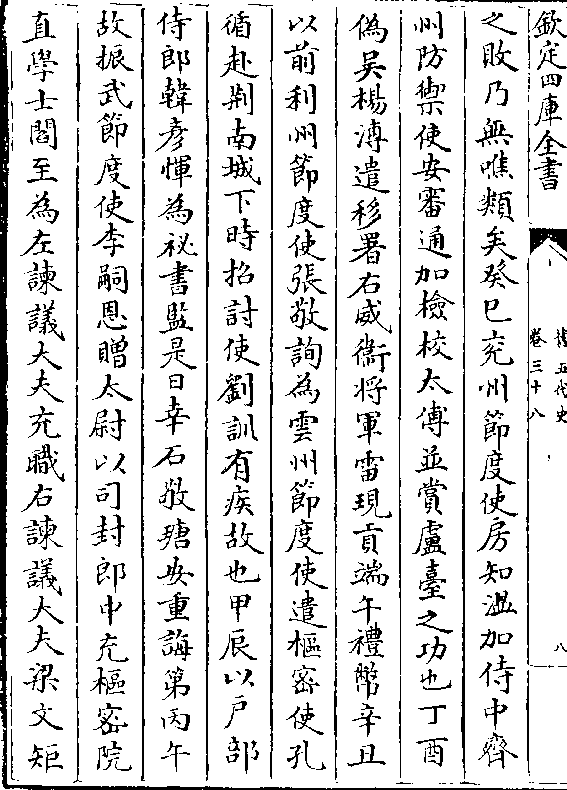 欽定四庫全書
舊五代史
卷三十八
八
之敗乃無噍類矣癸巳兖州節度使房知溫加侍中齊
州防禦使安審通加檢校太傅並賞盧臺之功也丁酉
偽吳楊溥遣移署右威衛將軍雷現貢端午禮幣辛丑
以前利州節度使張敬詢為雲州節度使遣樞密使孔
循赴荆南城下時招討使劉訓有疾故也甲辰以戶部
侍郎韓彥惲為祕書監是日幸石敬瑭安重誨第丙午
故振武節度使李嗣恩贈太尉以司封郎中充樞密院
直學士閻至為左諫議大夫充職右諫議大夫梁文矩